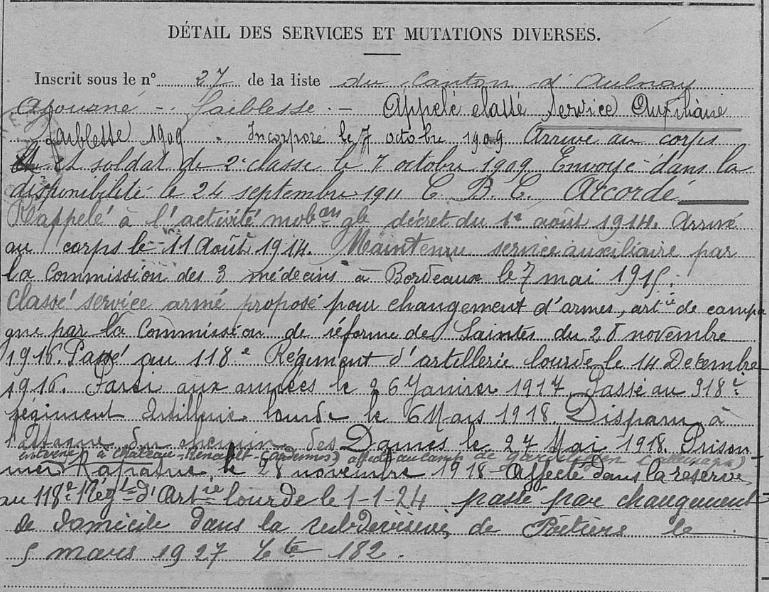 DÉTAIL DES SERVICES ET MUTATIONS DIVERSES.
Inscrit sous le n° 27 de la liste du Canton d'Aulnay
Ajourné - faiblesse - Appelé classé Service Auxiliaire
faiblesse 1909 . Incorporé le 7 octobre 1909 Arrivé au corps
et soldat de 2e classe le 7 octobre 1909 Envoyé dans la
disponibilité le 24 septembre 1911 C. B. C. Accordé
Rappelé à l'activité mobon gle décret du 1er août 1914. Arrivé
au corps le 11 Août 1914. Maintenu service auxiliaire par
la Commission des 3 médecins à Bordeaux le 7 mai 1915.
Classé service armé proposé pour changement d'armes, artie de campa
gne par la Commission de réforme de Saintes du 28 novembre
1916. Passé au 118e Régiment d'artillerie lourde le 14 Décembre
1916. Parti aux armées le 26 Janvier 1917. Passé au 318e
régiment Artillerie lourde le 6 Mars 1918. Disparu à
l'attaque du chemin des Dames le 27 Mai 1918. Prison
interné à Château-Renault (Ardennes) puis au camp de
nier Rapatrié le 28 novembre 1918 - Affecté dans la réserve
au 118e Régt d'Artie lourde le 1-1-24 passé par changement
de domicile dans la subdivision de Poitiers le
5 mars 1927 Cte 182.